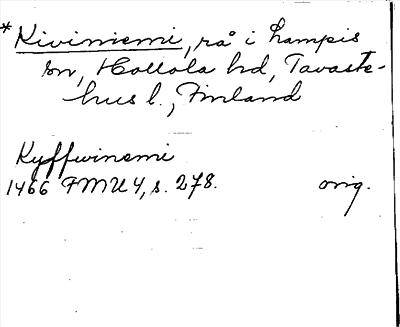 *Kiviniemi, rå i Lampis
sn, Hollola hd, Tavaste-
hus l., Finland
Kyffwinemi
1466 FMU 4, s. 278. orig.